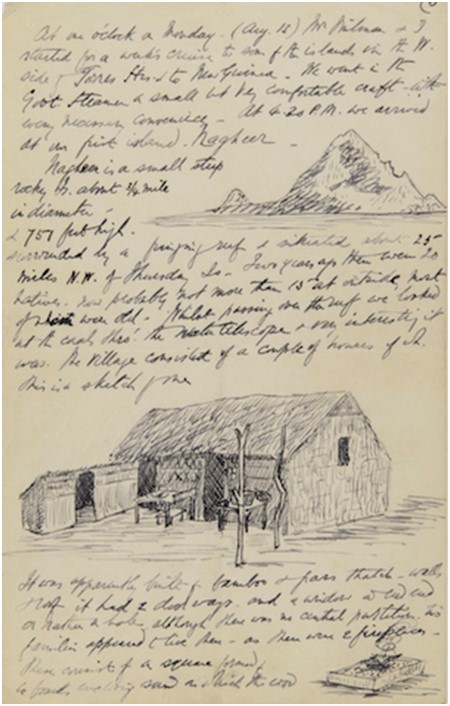 At one o'clock on Monday. (Aug. 15) Mr Milman & I
started for a week's cruise to some of the islands in the W.
side of Torres Strs to New Guinea. We went in the
Govt Steamer a small but very comfortable craft with
every necessary convenience - At 4.20 P.M. we arrived
at our first island. Nagheer -
Nagheer is a small steep
rocky Is. about 3/4 mile
in diameter -
& 757 feet high.
surrounded by a fringing reef & situated about 25
miles N.W. of Thursday Is - Two years ago there were 20
natives - now probably not more than 15 at outside, most
of whom were old. Whilst passing over the reef we looked
at the corals thro' the water telescope & very interesting it
was. The village consisted of a couple of houses of wh.
this is a sketch of one
It was apparently built of bamboo & grass thatch - walls
& roof it had 2 doorways and a window at one end
or rather a hole, although there was no central partition, two
families appeared to live there - as there were 2 fireplaces -
these consist of a square formed
by boards enclosing sand on which the wood